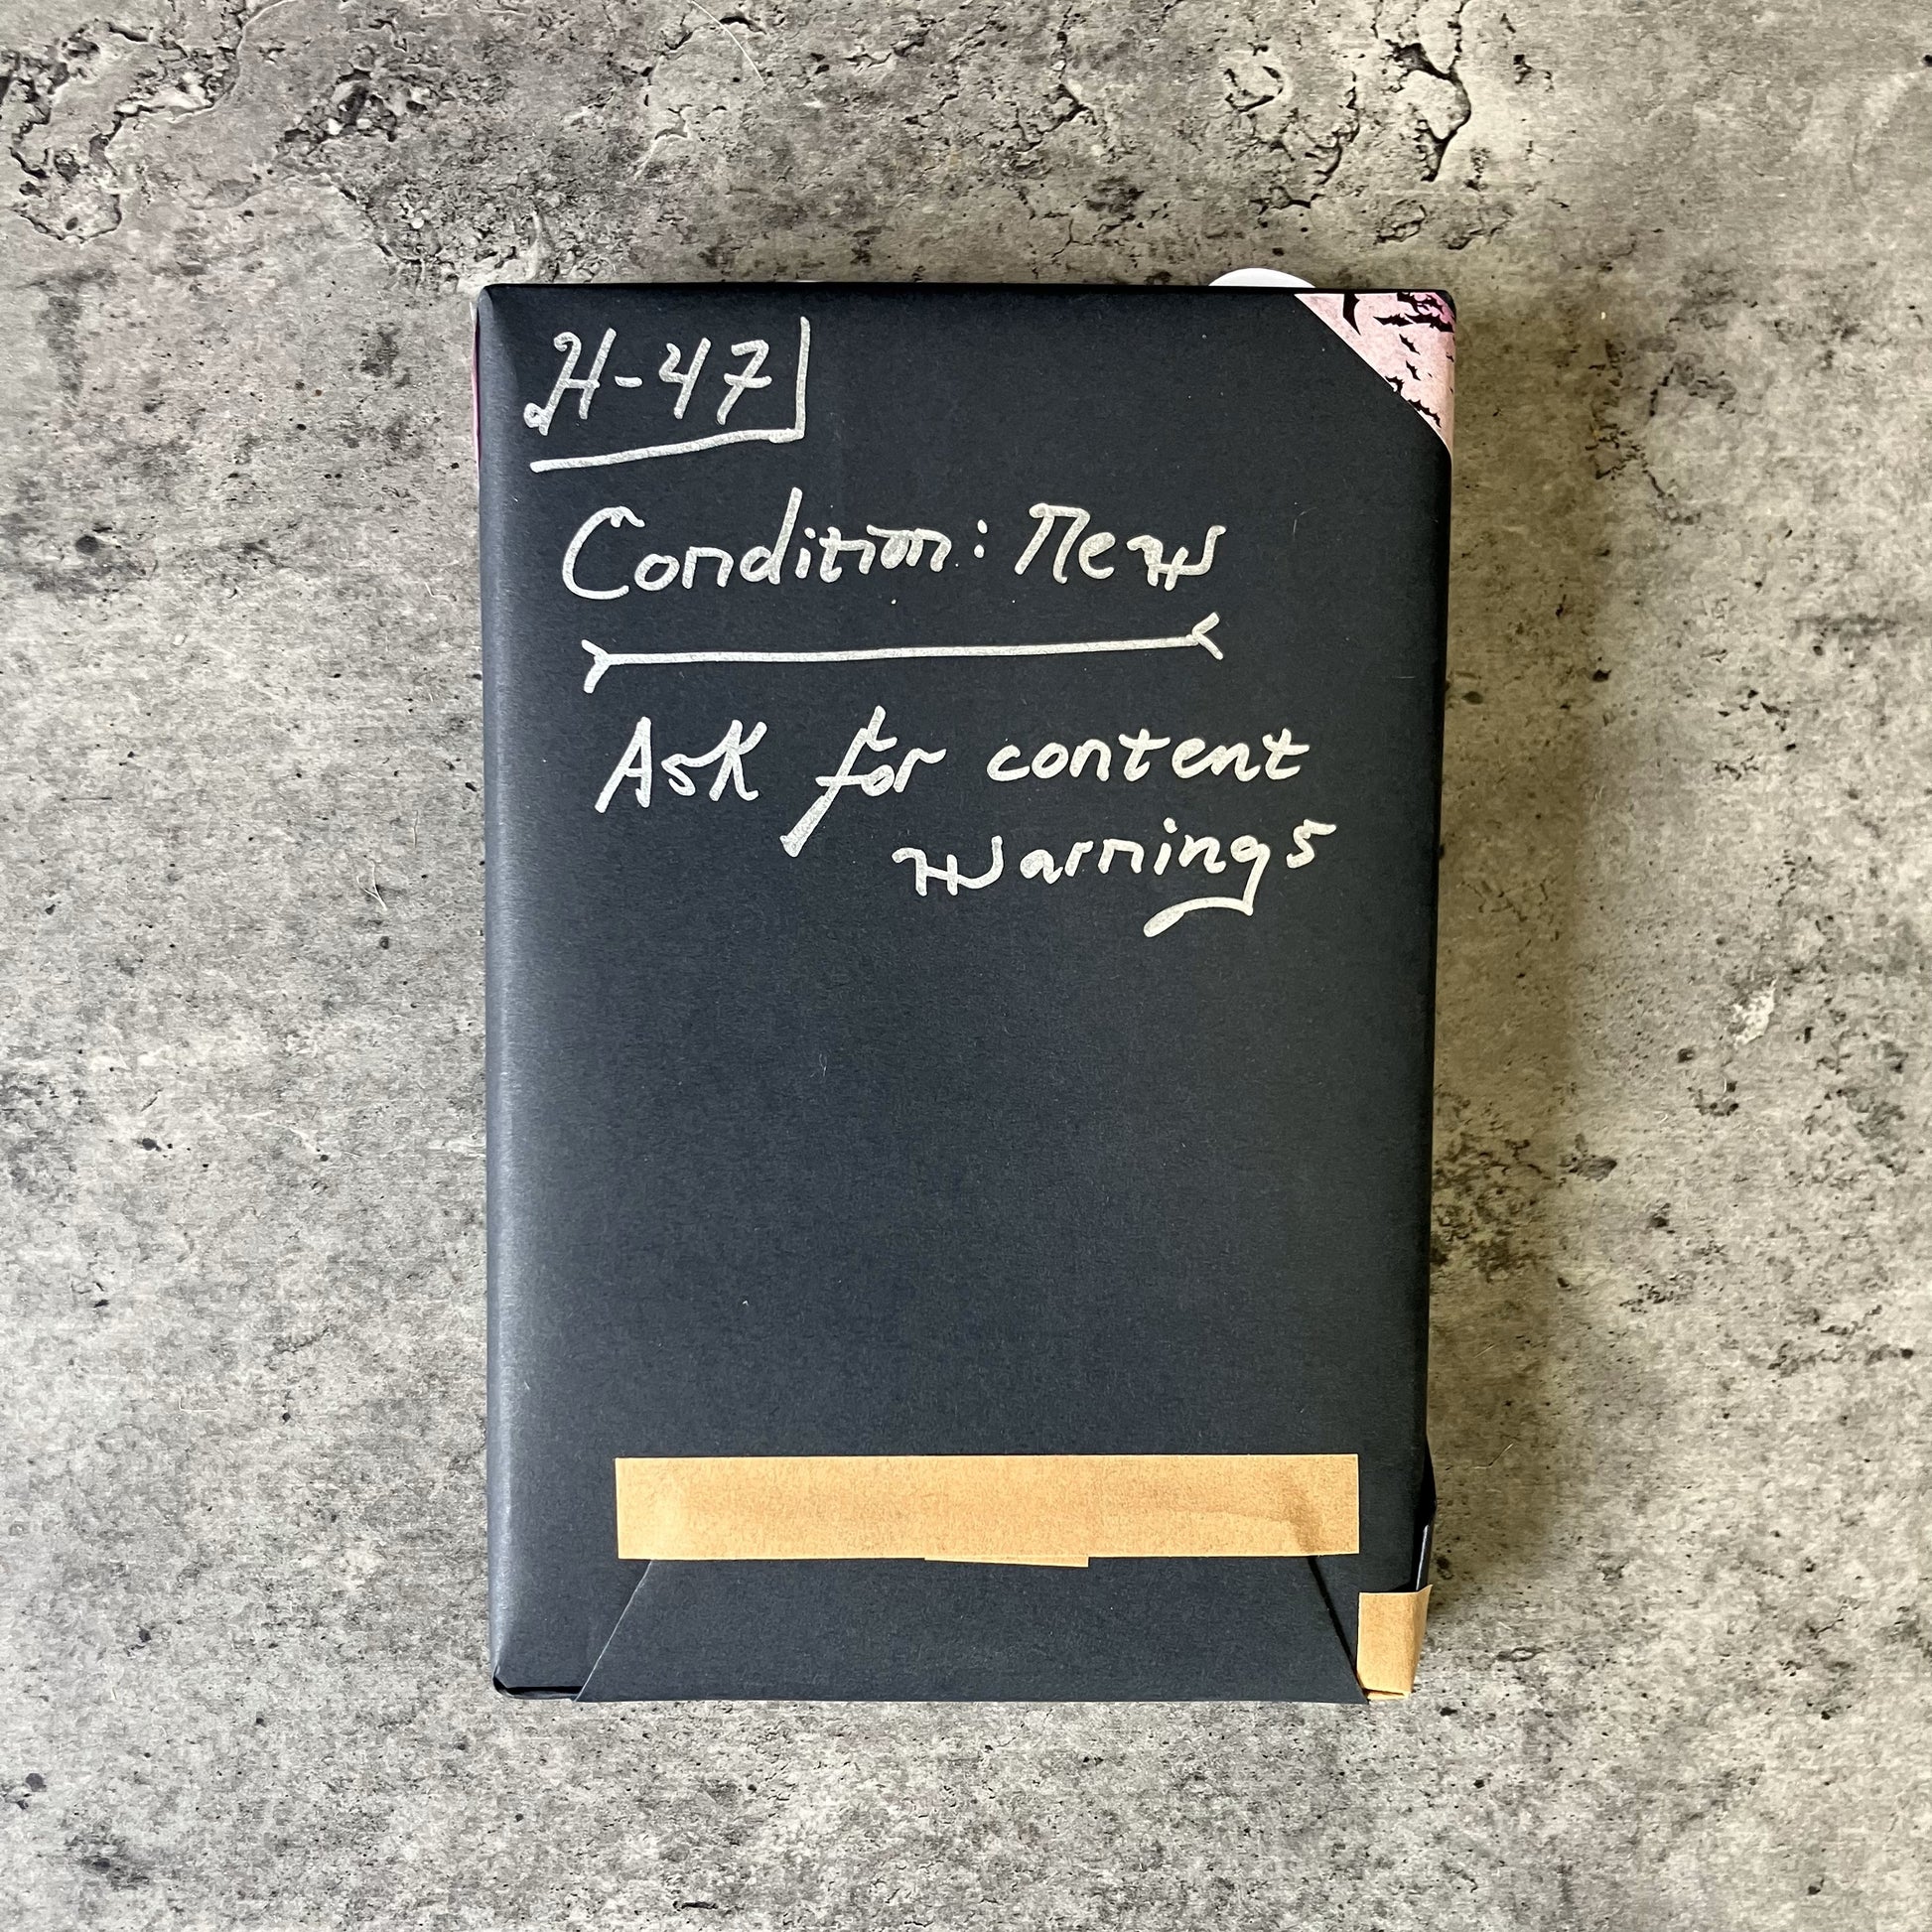 H-47
Condition: New
Ask for content
warnings